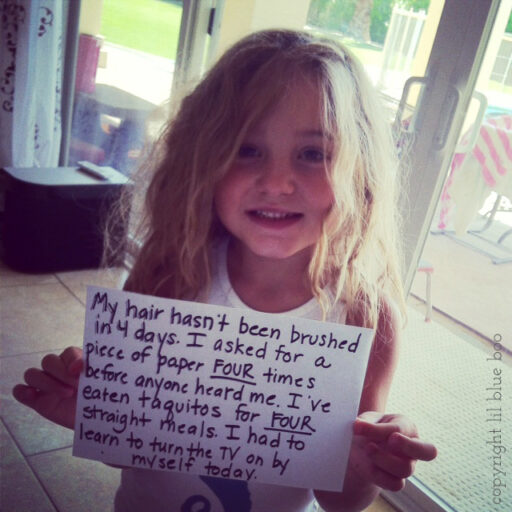 My hair hasn't been brushed
in 4 days. I asked for a
piece of paper FOUR times
before anyone heard me. I've
eaten taquitos for FOUR
straight meals. I had to
learn to turn the TV on by
myself today.
copyright lil blue boo